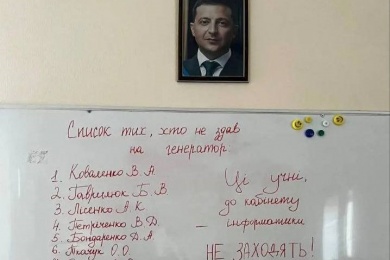 Список тих, хто не здав
на генератор
1. Коваленко В. А
2. Гаврилюк Б. В
3. Лісенко А. К
4. Петріченко В Д
5. Бондаренко Д. А
6. Ткачук О. О.
Ці учні,
до кабінету
інформатики
НЕ ЗАХОДЯТЬ!